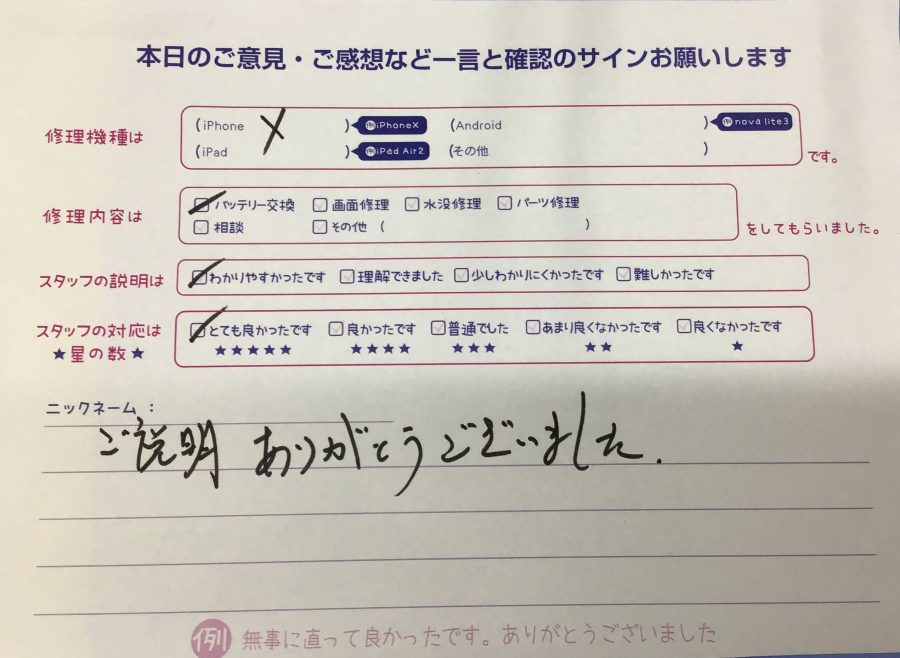 本日のご意見・ご感想など一言と確認のサインお願いします
修理機種は (iPhone X ) 例iPhoneX (Android ) 例nova lite3
(iPad ) 例iPad Air2 (その他 ) です。
修理内容は バッテリー交換 画面修理 水没修理 パーツ修理
相談 その他 ( ) をしてもらいました。
スタッフの説明は わかりやすかったです 理解できました 少しわかりにくかったです 難しかったです
スタッフの対応は とても良かったです 良かったです 普通でした あまり良くなかったです 良くなかったです
★星の数★ ★★★★★ ★★★★ ★★★ ★★ ★
ニックネーム：
ご説明 ありがとうございました.
例 無事に直って良かったです。ありがとうございました